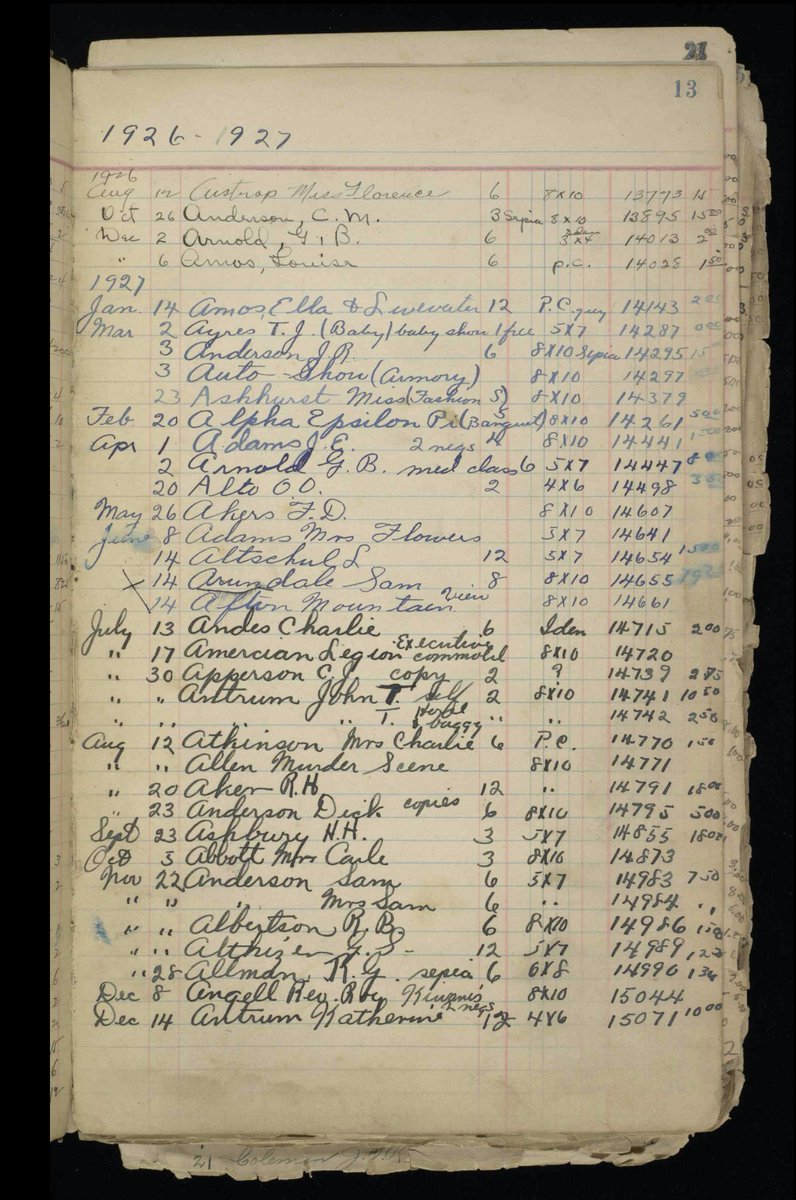 21
13
1926-1927
1926
Aug 12 Austrop Miss Florence 6 8x10 13773 15
Oct 26 Anderson, C. M. 3 Sepia 8x10 13895 15 00
Dec 2 Arnold, G, B. 6 3x4 14013 2 00
" 6 Amos, Louise 6 p.c. 14028 1 50
1927
Jan. 14 Amos, Ella & Livewater 12 P.C. 14143 2 00
Mar 2 Ayres T. J. (Baby) baby show 1 free 5x7 14287 000
3 Anderson J. R. 6 8x10 Sepia 14295 15
3 Auto-Show (Armory) 8x10 14297
23 Ashhurst Miss (Fashion S) 8x10 14379
Feb 20 Alpha Epsilon Pi (Banquet) 8x10 14261 500
Apr 1 Adams J. E. 2 negs 4 8x10 14441 1500
2 Arnold G. B. med class 6 5x7 14447 8 00
20 Alto O O. 2 4x6 14498 3
May 26 Akers F. D. 8x10 14607
June 8 Adams Mrs Flowers 5x7 14641
14 Altschul L 12 5x7 14654 1500
14 Arundale Sam 8 8x10 14655
14 Afton Mountain View 8x10 14661
July 13 Andes Charlie 6 Iden 14715 2 00
" 17 Amercian Legion Executive commotel 8x10 14720
" 30 Apperson C. J. copy 2 ? 14739 2 75
" " Antrum John T. self 2 8x10 14741 10 50
" " " " T. Horse & buggy " " 14742 2 50
Aug 12 Atkinson Mrs Charlie 6 P.C. 14770 1 50
" " Allen Murder Scene 8x10 14771
" 20 Aker R. H 12 " 14791 18 00
" 23 Anderson Dick copies 6 8x10 14795 5 00
Sept 23 Ashbury H. H. 3 5x7 14855 18 00
Oct 5 Abbott Mrs Carle 3 8x10 14873
Nov 22 Anderson Sam 6 5x7 14983 7 50
" " " Mrs Sam 6 " 14984 "
" " Albertson R. B. 6 8x10 14986
" " Althizer G. S- 12 5x7 14989
" 28 Allman R. G. sepia 6 6x8 14990
Dec 8 Angell Rev. Roy Kiwanis 8x10 15044
Dec 14 Antrum Katherine 2 negs 12 4x6 15071 10 00
21 Coleman